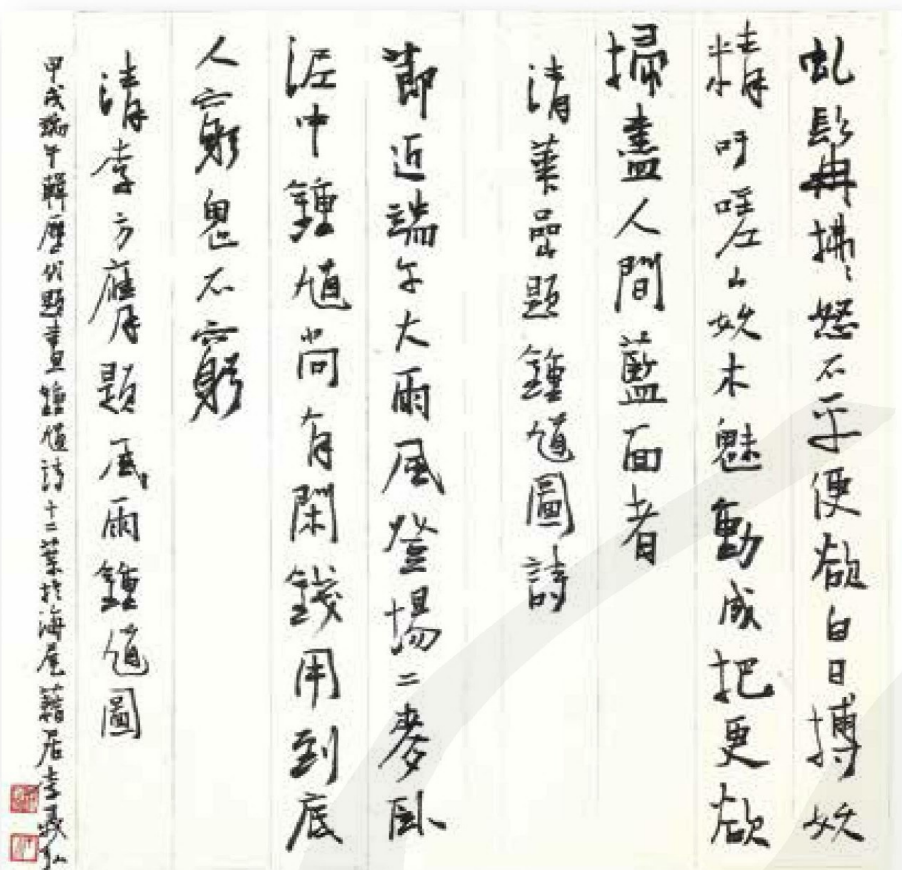 虬髯拂〻怒不平便欲白日搏妖
精吁嗟山妖木魅動成把更欲
掃盡人間藍面者
清華嵒題鍾馗圖詩
節近端午大雨風登場二麥臥
泥中鍾馗尚有閑錢用到底
人窮鬼不窮
清李方膺題風雨鍾馗圖
甲戌端午輯歷代題畫鍾馗詩十二葉於海尾藉居李義弘